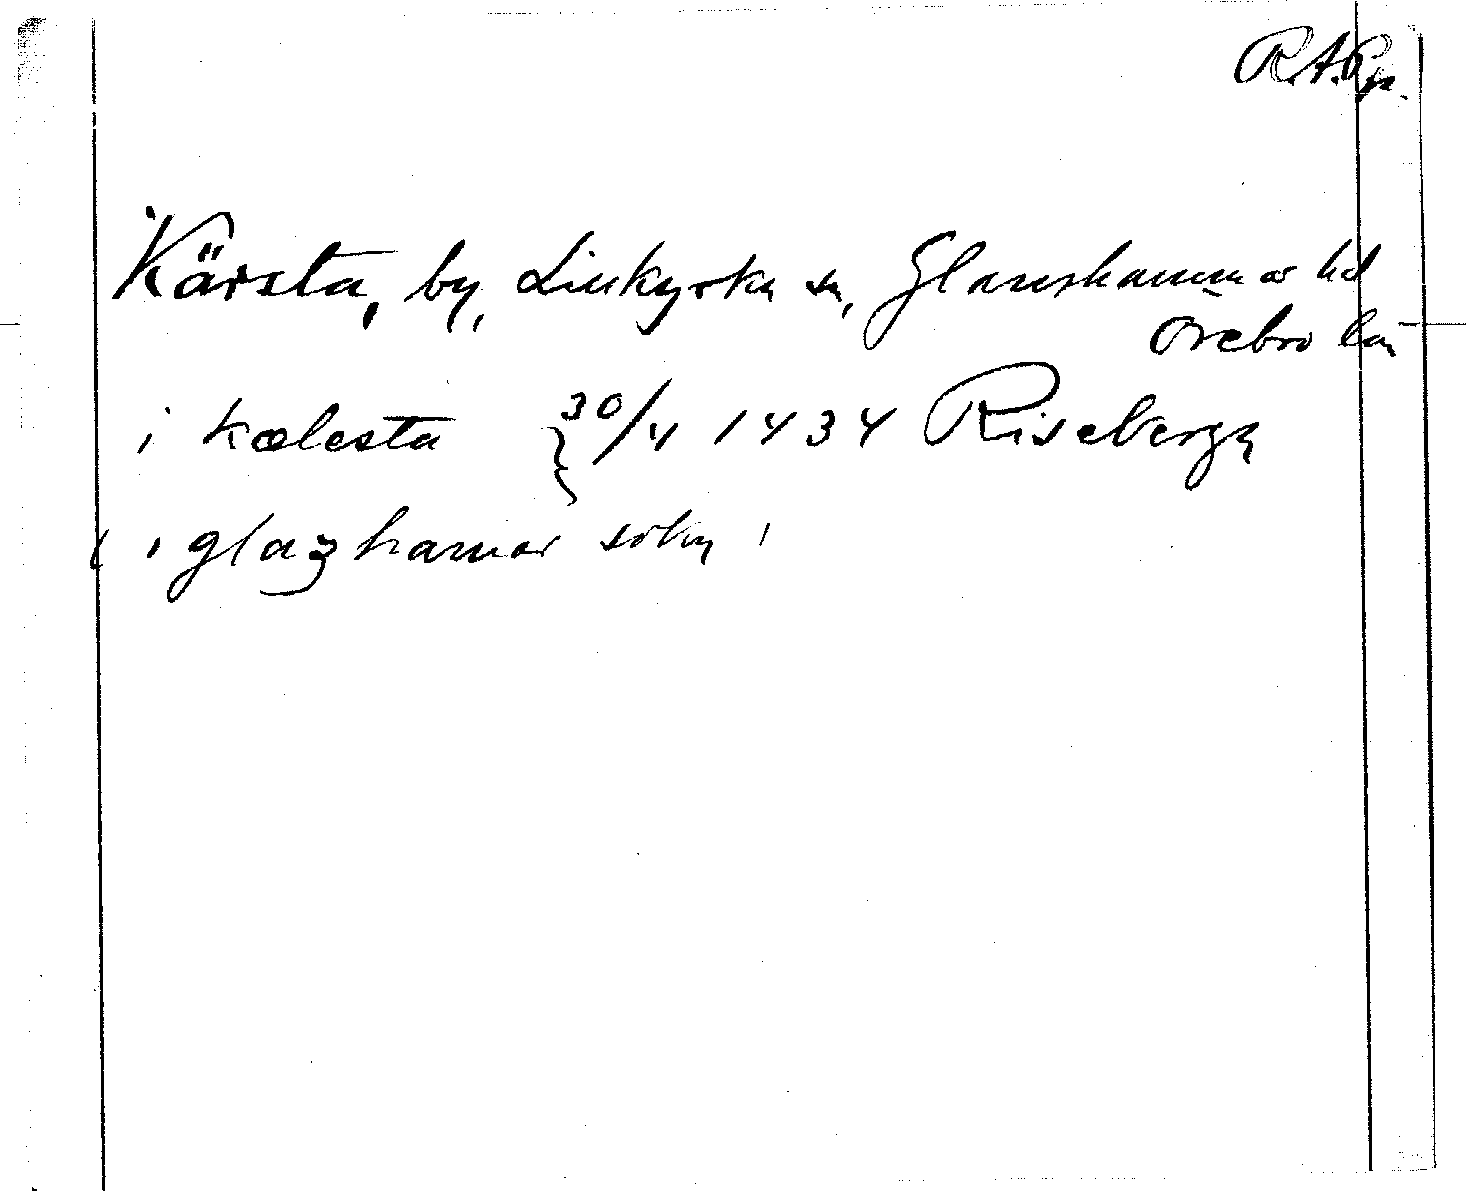 R.A.Pp.
Kärsta, by, Linkyrka sn, Glanshammar hd
Örebro län
i kælesta } 30/4 1434 Riseberga
( i glazhamar sokn )